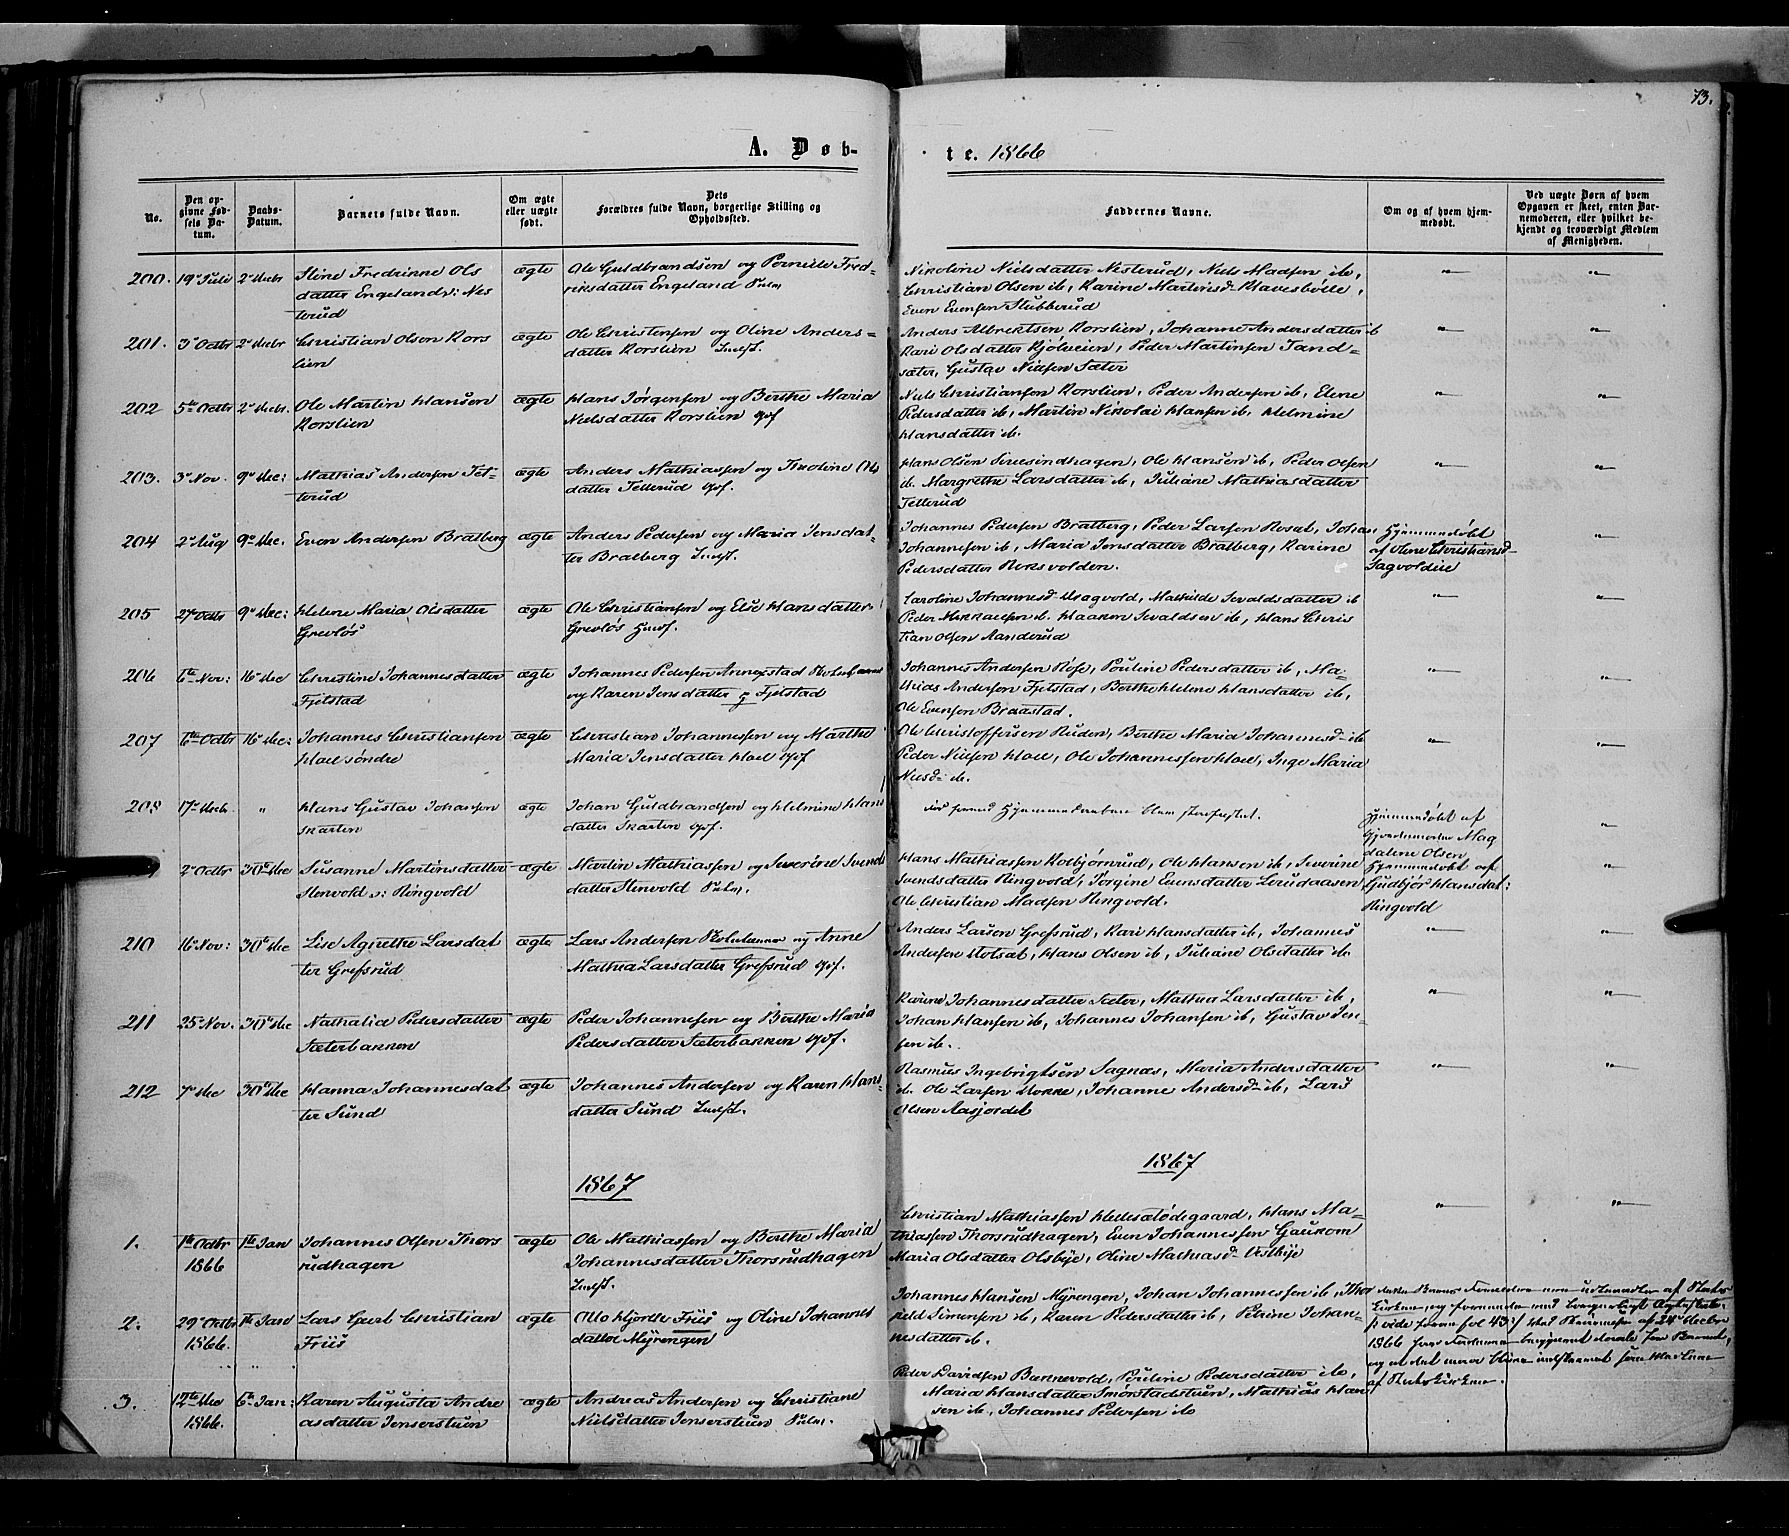 73.
A. Døb-
te. 1866
No.
Den op-
givne Fød-
sels Da-
tum.
Daabs-
Datum.
Barnets fulde Navn.
Om ægte
eller uægte
født.
Dets
Forældres fulde Navn, borgerlige Stilling og
Opholdssted.
Faddernes Navne.
Om og af hvem hjem-
medøbt.
Ved uægte Børn af hvem
Opgaven er skeet, enten Bar-
nemoderen, eller hvilket be-
kjendt og troværdigt Medlem
af Menigheden.
200. 19 Juli 2 Decbr Stine Fredrinne Ols ægte Ole Guldbrandsen og Pernille Fred-
datter Engeland : Nes riksdatter Engeland
terud
Nikoline Nielsdatter Nesterud, Niels Madsen ib,
Christian Olsen ib, Karine Martinsd Klavesbølle,
Even Evensen Stubberud
201. 3 Octbr 2 Decbr Christian Olsen Kors ægte Ole Christensen og Oline Anders=
lien datter Korslien Indst.
Anders Albrektsen Korslien, Johanne Andersdatter ib
Kari Olsdatter Kjølveien, Peder Martinsen Tand=
sæter, Gustav Nilsen Sæter
202 5te Octbr 2 Decbr. Ole Martin Hansen ægte Hans Jørgensen og Berthe Maria
Korslien Nielsdatter Korslien
Niels Christiansen Korslien, Peder Andersen ib, Elene
Pedersdatter ib, Martin Nikolai Hansen ib, Helmine
Hansdatter ib.
203. 3 Nov. 9 Dec: Mathias Andersen Tet- ægte Anders Mathiassen og Theoline Ols
terud datter Tetterud
Hans Olsen Sivesindhagen, Ole Hansen ib, Peder Olsen
ib. Margrethe Larsdatter ib, Juliane Mathiasdatter
Tetterud
204 2 Aug 9 Dec. Even Andersen Bratberg ægte Anders Pedersen og Maria Jensdat-
ter Bratberg Indst.
Johannes Pedersen Bratberg, Peder Larsen Rosat, Johan
Johannesen ib, Maria Jensdatter Bratberg, Karine
Pedersdatter Roksvolden.
Hjemmedøbt
af Oline Christiansd
Sagvoldeie
205 27 Octbr 9 Dec: Helene Maria Olsdatter ægte Ole Christiansen og Else Hansdatter
Grevløs Grevløs
Caroline Johannesd Dragvold, Mathilde Sevaldsdatter ib
Peder Mikkaelsen ib. Haaken Sevaldsen ib, Hans Chris
tian Olsen Aanderud
206 6te Nov: 16 Dec Christine Johannesdatter ægte Johannes Pedersen Annexstad
Fjelstad og Karen Jensdatter Fjelstad
Johannes Andersen Røse, Pouline Pedersdatter ib, Ma-
thias Andersen Fjelstad, Berthe Helene Hansdatter ib,
Ole Evensen Braastad.
207 6te Octbr 16 Dec: Johannes Christiansen ægte Christian Johannesen og Marthe
Hoel søndre Maria Jensdatter Hoel
Ole Christoffersen Ruden, Berthe Maria Johannesd ib
Peder Nilsen Hoel, Ole Johannessen Hoel, Inge Maria
Nilsd ib.
208 17 Decb. " Hans Gustav Johansen ægte Johan Guldbrandsen og Helmine Hans
Skarten datter Skarten
Hjemmedøbt af
Gjordemoder Mag
dalene Olsen
2 Octbr 30te Dec Susanne Martinsdatter ægte Martin Mathiassen og Severine Svends
Stenvold : Ringvold datter Stenvold
Hans Mathiassen Kolbjørnrud, Ole Hansen ib, Severine
Svendsdatter Ringvold, Jørgine Evensdatter Lerudaasen,
Ole Christian Madsen Ringvold.
Hjemmedøbt af
Gudbjør Hansdat:
Ringvold
210 16 Nov: 30te Dec Lise Agnethe Larsdat ægte Lars Andersen og Anne
ter Grefsrud Mathea Larsdatter Grefsrud
Anders Larsen Grefsrud, Kari Hansdatter ib, Johannes
Andersen Rotsat, Hans Olsen ib, Juliane Olsdatter ib.
211 25 Nov. 30te Dec Nathalia Pedersdatter ægte Peder Johannesen og Berthe Maria
Sæterbakken Pedersdatter Sæterbakken
Karine Johannesdatter Sæter, Mathea Larsdatter ib,
Johan Hansen ib, Johannes Johansen ib, Gustav Jen-
sen ib.
212 7 Dec 30te Dec Hanna Johannesdat ægte Johannes Andersen og Karen Hans-
ter Sund datter Sund Indst.
Rasmus Ingebrigtsen Sagnæs, Maria Andersdatter
ib. Ole Larsen Stokke, Johanne Andersd ib, Lars
Olsen Aasjordet
1867
1867
1. 1te Octbr 1te Jan Johannes Olsen Thors ægte Ole Mathiassen og Berthe Maria
1866 rudhagen Johannesdatter Thorsrudhagen
Indst.
Christian Mathiassen Hedesalødegaard, Hans Ma-
thiassen Thorsrudhagen, Even Johannessen Gaukom
Maria Olsdatter Olsbye, Oline Mathiasd Vestbye
2. 29 Octbr 1te Jan Lars Gjert Christian ægte Otto Hjorth Friis og Oline Johannes
1866. Friis datter Myrengen
Johannes Hansen Myrengen, Johan Johannessen ib, Thor
feld Simensen ib, Karen Pedersdatter ib, Petrine Johan-
nesdatter ib.
3. 12te Dec 6te Jan: Karen Augusta Andre ægte Andreas Andersen og Christiane
1866. asdatter Jenserstuen Nielsdatter Jenserstuen
Peder Davidsen Bannevold, Pauline Pedersdatter ib,
Maria Hansdatter Smørstadstuen, Mathias Han
sen ib, Johannes Pedersen ib